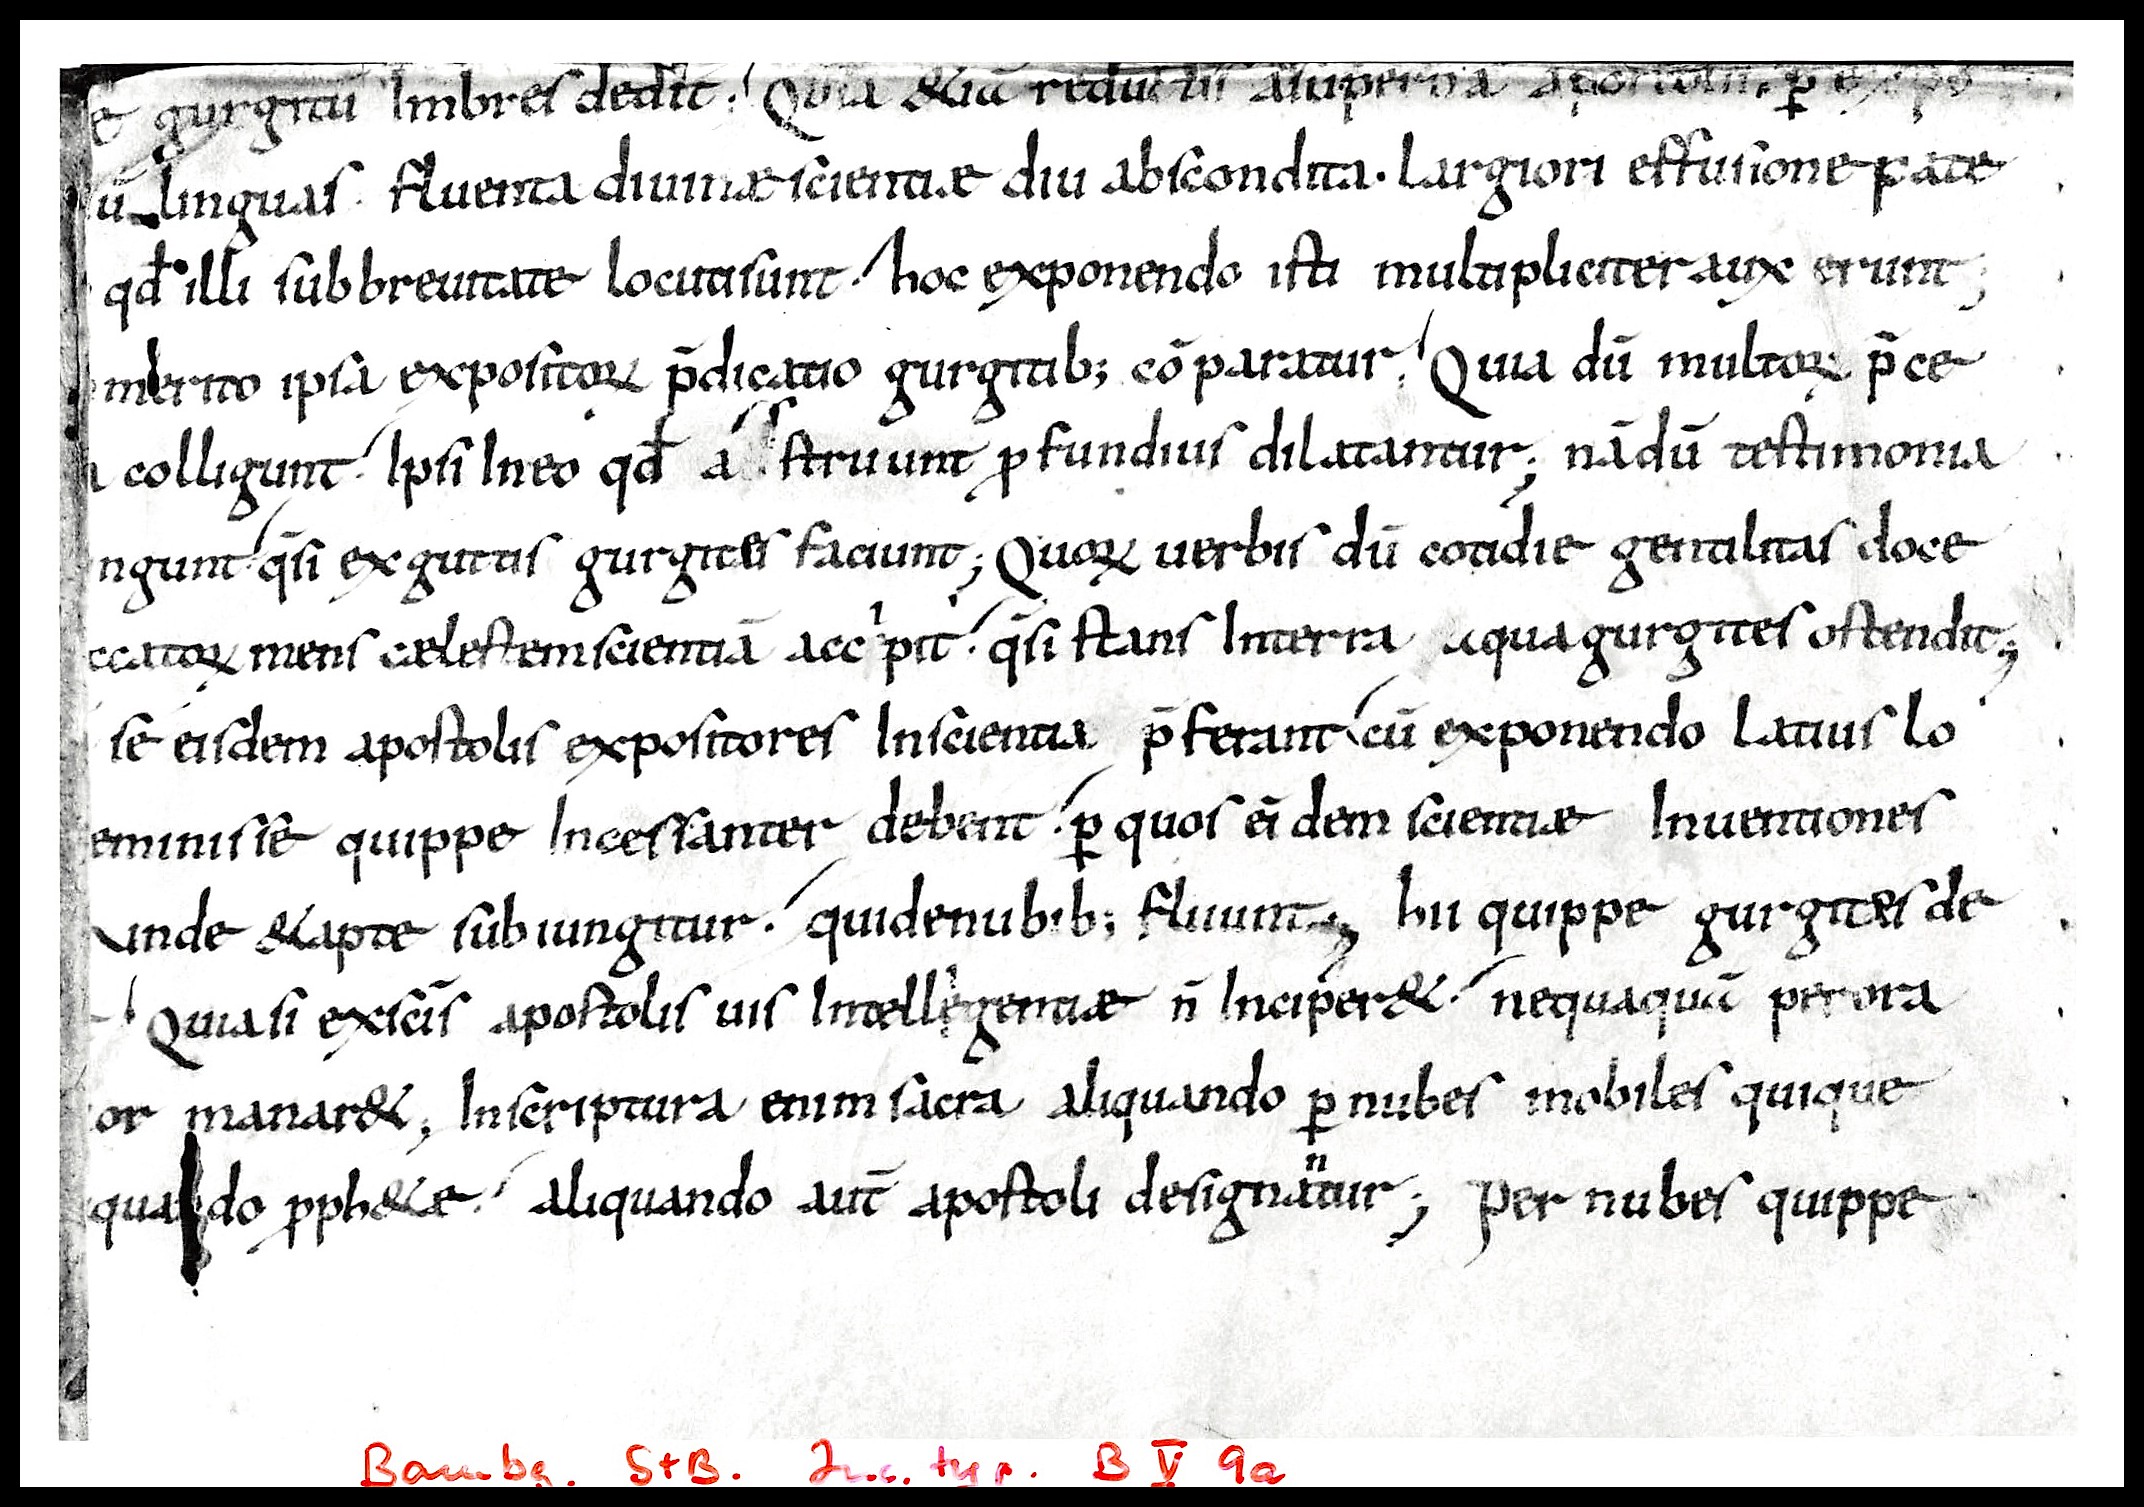 e gurgitū Imbres dedit. Quia &iā reductis asuperna apostolis, ꝑ expo
ū linguas. fluenta diuinæ scientiæ diu abscondita. largiori effusione pate
qđ illi sub breuitate locuti sunt. hoc exponendo isti multipliciter aux erunt;
merito ipsa expositoꝝ p̄dicatio gurgitib; cōparatur. Quia dū multoꝝ p̄ce
a colligunt. Ipsi In eo qđ a struunt ꝓfundius dilatantur; nā dū testimonia
ngunt q̄si ex guttis gurgites faciunt; Quoꝝ uerbis dū cotidie gentilitas doce
ccatoꝝ mens cælestem scientiā accipit. q̄si stans In terra aqua gurgites ostendit;
se eisdem apostolis expositores In scientia p̄ferant cū exponendo latius lo
eminisse quippe Incessanter debent. ꝑ quos eidem scientiæ Inuentiones
unde &apte subiungitur. qui de nubib; fluunt; hii quippe gurgites de
Quia si ex sc̄is apostolis uis Intellegentiæ n̄ Inciper&. nequaquā per ora
or manar&; In scriptura enim sacra aliquando ꝑ nubes mobiles quique
quando ꝓph&æ. aliquando aut̄ apostoli designantur; Per nubes quippe
Bambg. StB. Inc. typ. B V 9a